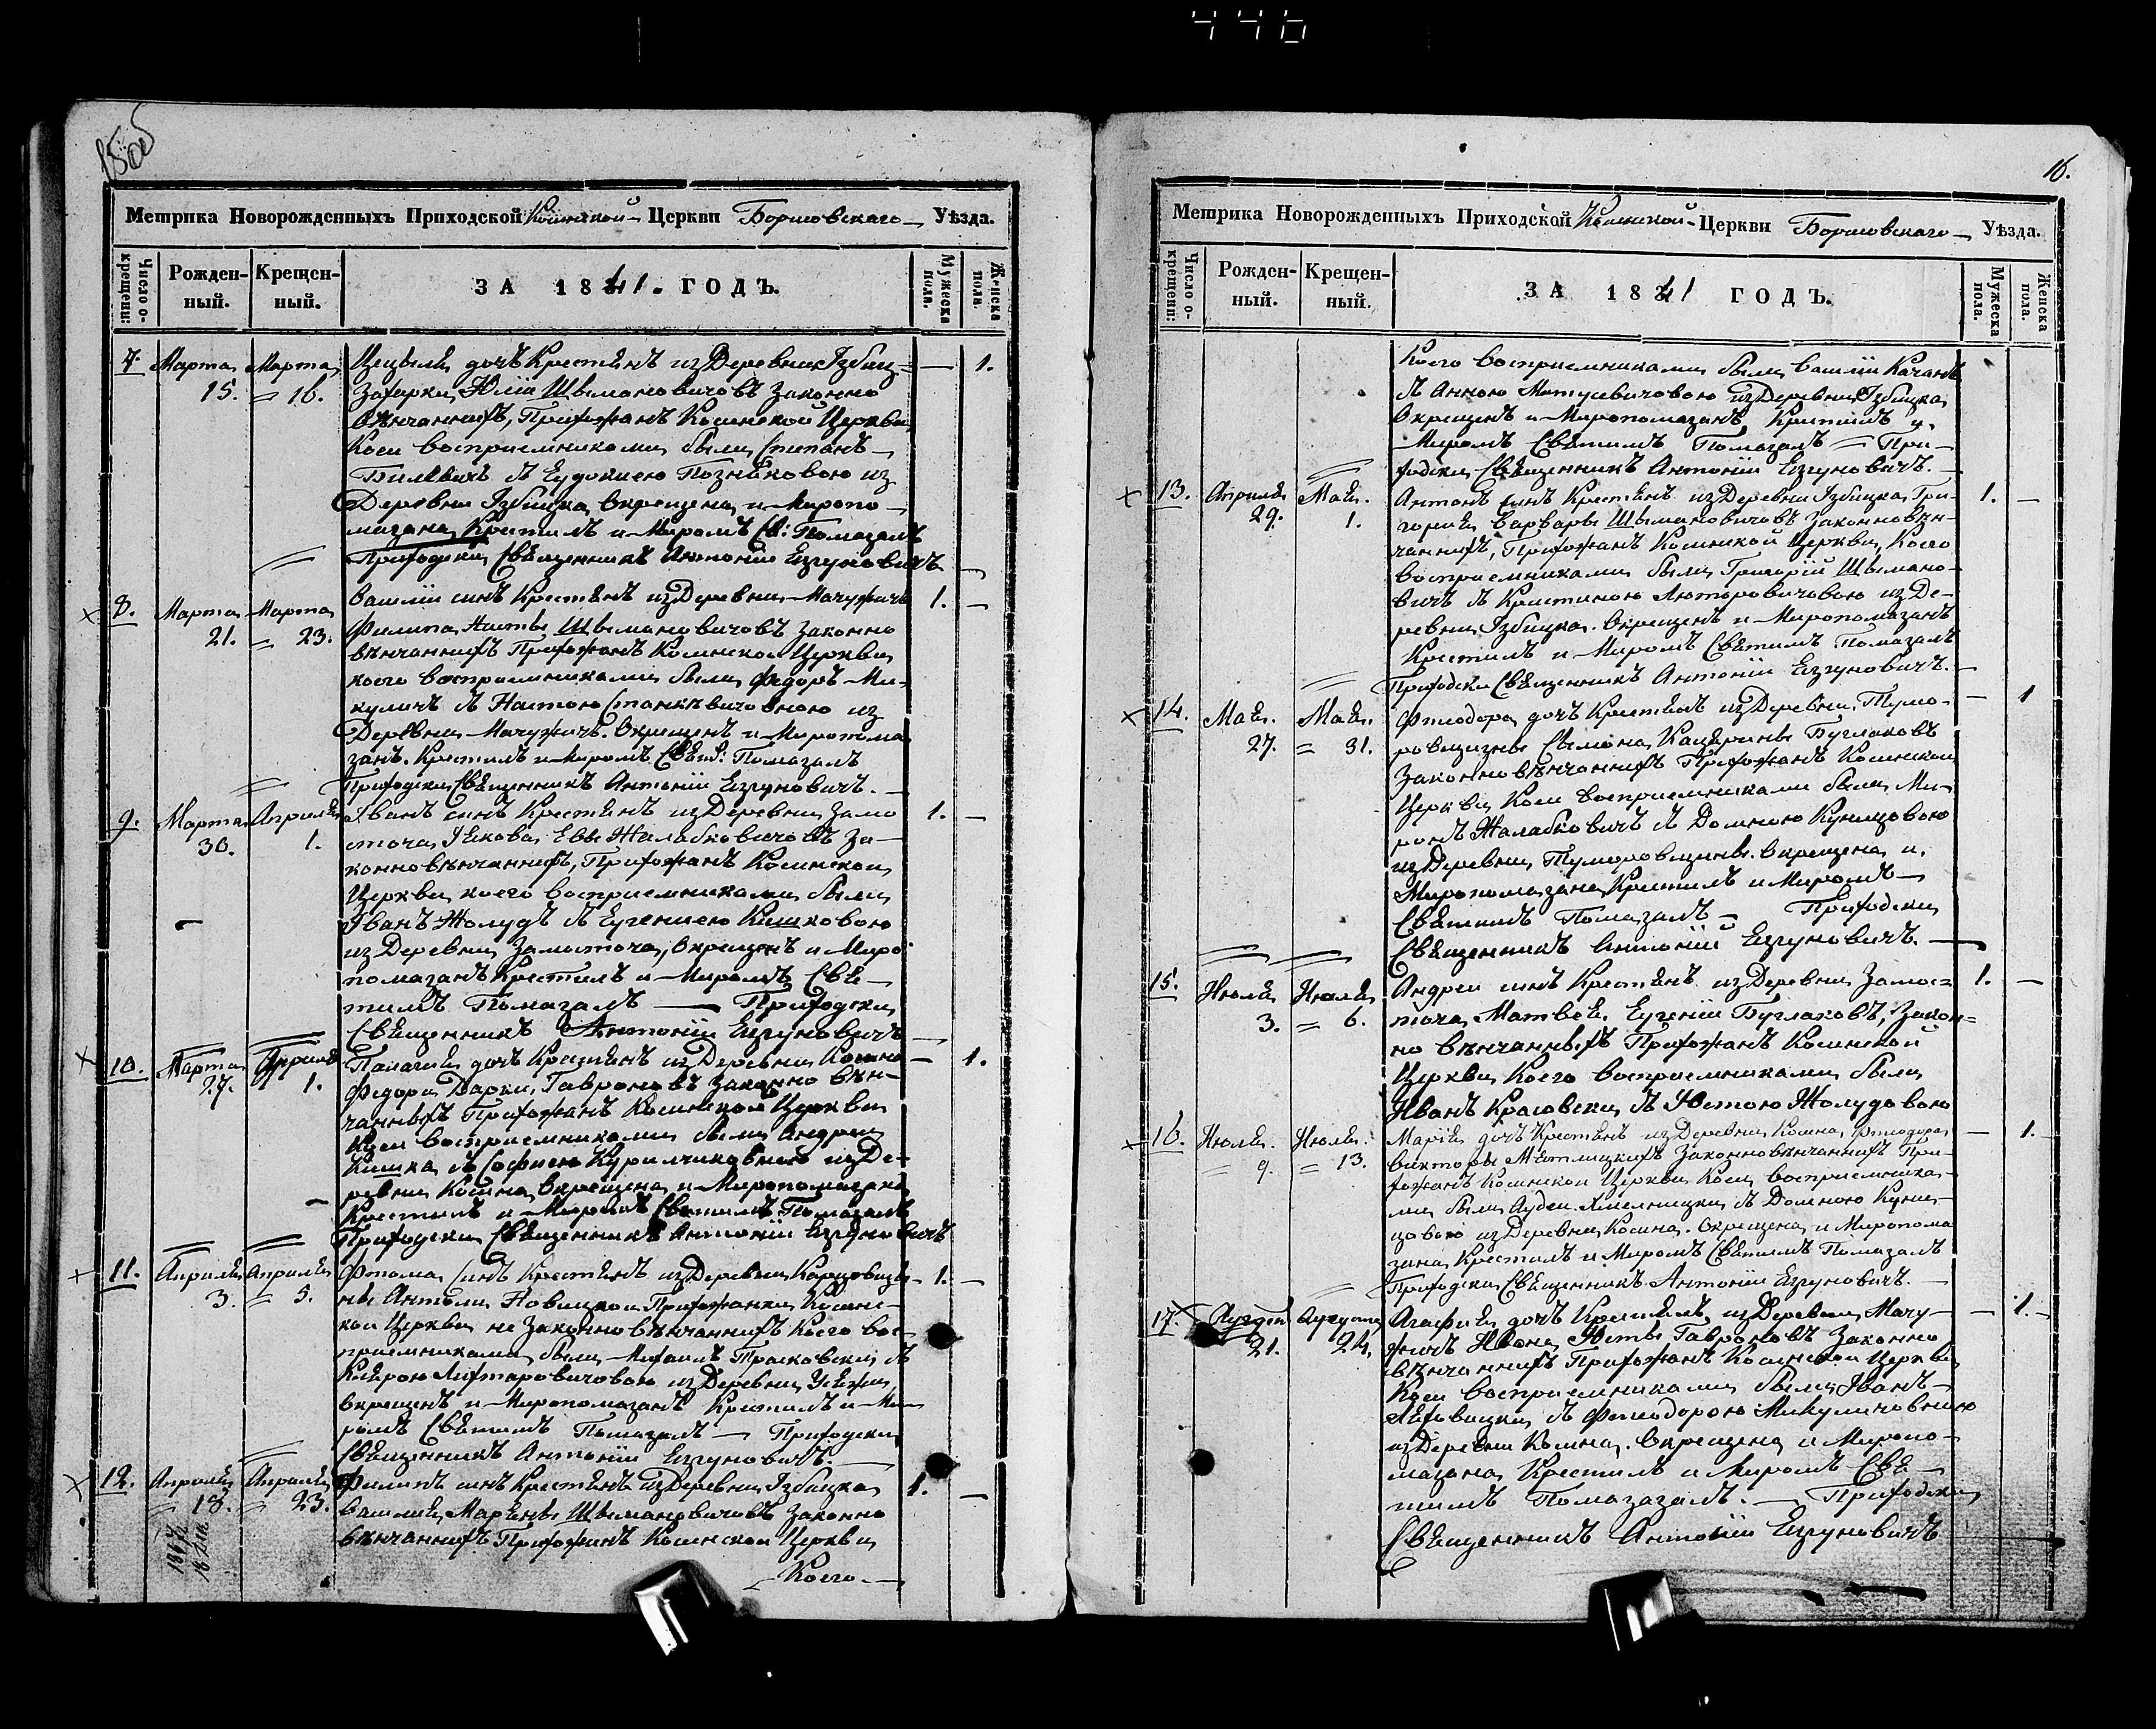 446
15об
Метрика Новорожденныхъ Приходской Косинской Церкви Борисовскаго Уѣзда.
Число о-крещени: Рожден-ный. Крещен-ный. ЗА 1841. ГОДЪ. Мужеска пола. Женска пола.
7. Марта Марта дочь Крестьянъ из Деревни Избиц= — 1.
15. = 16. Захарки Юліи Шымановичовъ Законно
вѣнчанныхъ, Прихожанъ Косинской Церкви
Коеи восприемниками были Степанъ
съ Еудокиею Позняковою из
Деревни Избицка Окрещена и Миропо-
мазана Крестилъ и Миромъ Св: Помазалъ
Приходски Священникъ Антоніи Езгуновичъ
8. Марта Марта Василіи синъ Крестьянъ из Деревни Мачужичъ 1. —
21. = 23. Филипа Насты Шымановичовъ Законно
вѣнчанныхъ Прихожанъ Косинской Церкви
коего восприемниками были Федоръ Ми-
куличъ съ Настою Станкевичовною из
Деревни Мачужичъ. Окрещенъ и Миропома
занъ. Крестилъ и Миромъ Свят: Помазалъ
Приходски Священникъ Антоніи Езгуновичъ. —
9. Марта Апреля Іванъ синъ Крестьянъ из Деревни Замо 1. —
30. 1. сточа Якова Евы Жалабковичовъ За-
конно вѣнчанныхъ, Прихожанъ Косинской
Церкви коего восприемниками были
Іванъ Жолудъ съ Еугениею Кишковою
из Деревни Замосточа, Окрещенъ и Миро
помазанъ Крестилъ и Миромъ Свя-
тимъ Помазалъ — Приходски
Священникъ Антоніи Езгуновичъ
10. Марта Апреля дочь Крестьянъ из Деревни Косина — 1.
27. 1. Федора Дарки Гавроновъ Законно вѣн-
чанныхъ Прихожанъ Косинской Церкви
Коеи восприемниками были Андреи
Кишка съ Софиею Курилчиковною из Де-
ревни Косина Окрещена и Миропомазана
Крестилъ и Миромъ Святимъ Помазалъ
Приходски Священникъ Антоніи Езгуновичъ
11. Апреля Апреля Фтома синъ Крестьянъ из Деревни — 1. —
3. = 5. ны Антоли Новицкои Прихожанки Косинс-
кои Церкви не Законно вѣнчанныхъ Коего вос-
приемниками были Михаилъ Трасковски съ
Лихтаровичовою из Деревни
Окрещенъ и Миропомазанъ Крестилъ и Ми
ромъ Святимъ Помазалъ — Приходски
Священникъ Антоніи Езгуновичъ. —
12. Апреля Апреля Филипъ синъ Крестьянъ из Деревни Избицка 1. —
= 18. = 23. Василия Марьяны Шымановичовъ Законно
вѣнчанныхъ Прихожанъ Косинской Церкви
Коего —
16.
Метрика Новорожденныхъ Приходской Косинской Церкви Борисовскаго Уѣзда.
Число о-крещени: Рожден-ный. Крещен-ный. ЗА 1841 ГОДЪ. Мужеска пола. Женска пола.
Коего восприемниками были Василіи Качанъ
съ Анною Матусевичовою из Деревни Избицка
Окрещенъ и Миропомазанъ Крестилъ и
Миромъ Святимъ Помазалъ — При-
ходски Священникъ Антоніи Езгуновичъ. —
13. Апреля Мая. Антонъ синъ Крестьянъ из Деревни Избицка Гри- 1. —
29. 1. гория Варвары Шымановичовъ Законно вѣн-
чанныхъ, Прихожанъ Косинской Церкви, Коего
восприемниками были Григорій Шымано-
вичъ съ Кристиною Люторовичовою из Де-
ревни Избицка. Окрещенъ и Миропомазанъ
Крестилъ и Миромъ Святимъ Помазалъ
Приходски Священникъ Антоніи Езгуновичъ. —
14. Мая. Мая. Фтеодора дочь Крестьянъ из Деревни Тумо- — 1
27. = 31. ровщизны Сымона Кацярины Буглаковъ
Законно вѣнчанныхъ Прихожанъ Косинской
Церкви Коеи восприемниками были Ми-
ронъ Жалабковичъ съ Домною Куницовою
из Деревни Тумаровщины. Окрещена и
Миропомазана Крестилъ и Миромъ —
Святимъ Помазалъ — Приходски
Священникъ Антоній Езгуновичъ. —
15. Июля Июля Андреи синъ Крестьянъ из Деревни Замос= 1. —
3. = 6. точа Матвея Еугеніи Буглаковъ, Закон=
но вѣнчанныхъ Прихожанъ Косинской
Церкви Коего восприемниками были
Иванъ Красовски съ Юстою Жолудовою
16. Июля. Июля. Марія дочь Крестьянъ из Деревни Косина Фтеодора — 1.
= 9. = 13. Викторы Мятлицкихъ Законно вѣнчанныхъ При-
хожанъ Косинской Церкви Коеи восприемника-
ми были Аудеи Хмельницки съ Домною Куни-
цовою из Деревни Косина. Окрещена и Миропома
зана Крестилъ и Миромъ Святимъ Помазалъ
Приходски Священникъ Антоніи Езгуновичъ. —
17. Аугуста Аугуста Агафия дочь Крестьянъ из Деревни Мачу- — 1.
21. 24. жичъ Ивана Юсты Гавроновъ Законно
вѣнчанныхъ Прихожанъ Косинской Церкви
Коеи восприемниками были Іванъ
съ Фтеодорою Микуличовною
из Деревни Косина. Окрещена и Миропо-
мазана Крестилъ и Миромъ Свя-
тимъ Помазазалъ. — Приходски
Священникъ Антоніи Езгуновичъ